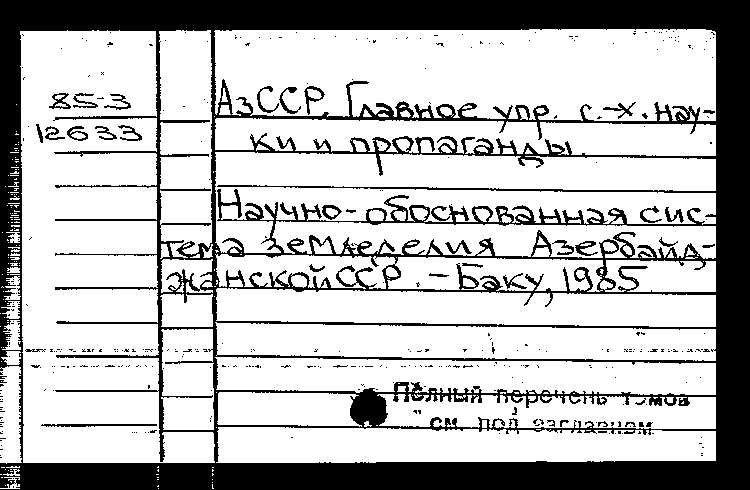 85-3
12633
АзССР. Главное упр. с.-х. нау-
ки и пропаганды.
Научно-обоснованная сис-
тема земледелия Азербайд-
жанской ССР. - Баку, 1985
Полный перечень томов
см. под заглавием